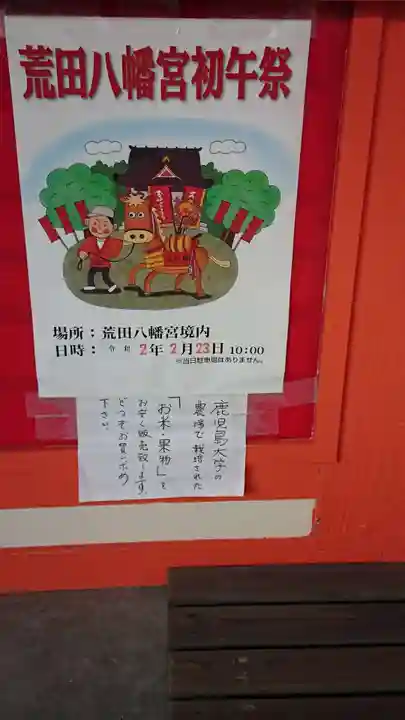 荒田八幡宮初午祭
場所：荒田八幡宮境内
日時：令和2年2月23日 10:00
※当日駐車場はありません。
鹿児島大学の
農場で栽培された
「お米・果物」を
お安く販売致します。
どうぞお買い求め
下さい。